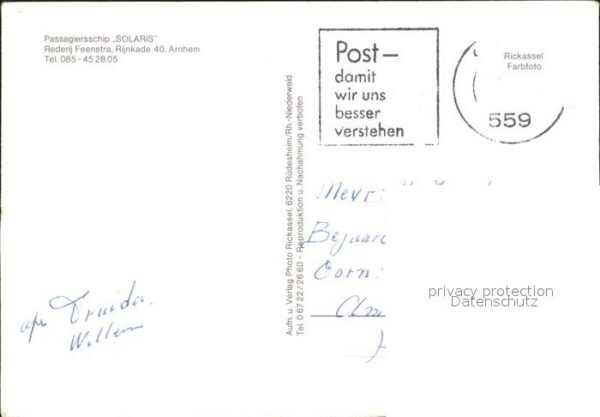 Passagiersschip „SOLARIS"
Rederij Feenstra, Rijnkade 40, Arnhem
Tel. 085 - 45 28 05
Post—
damit
wir uns
besser
verstehen
Rickassel
Farbfoto
559
Aufn. u. Verlag Photo Rickassel, 6220 Rüdesheim/Rh.-Niederwald
Tel. 0 67 22 / 26 60 - Reproduktion u. Nachahmung verboten
Mevr.
Corn.
privacy protection
Datenschutz
Willem